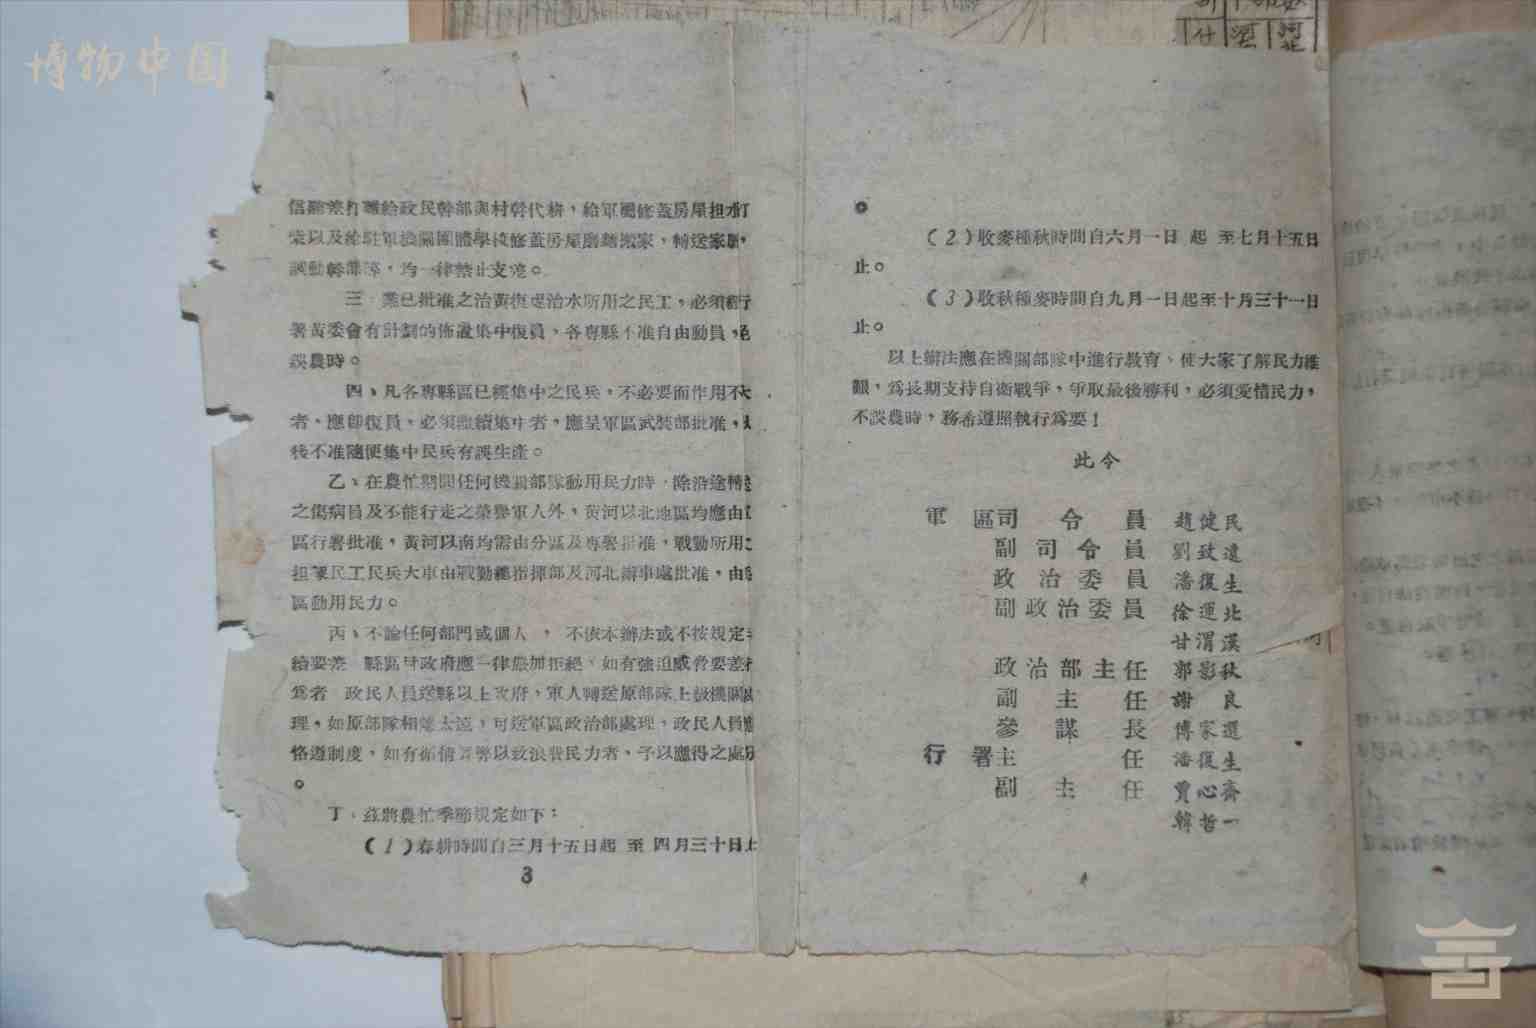 博物中国
信辦差打雜給政民幹部與村幹代耕，給軍屬修蓋房屋担水打
柴以及給駐軍機關團體學校修蓋房屋磨麵搬家，轉送家屬，
調動幹部等，均一律禁止支差。
三、業已批准之治黃復堤治水所用之民工，必須經行
署黃委會有計劃的佈置集中復員，各專縣不准自由動員，
誤農時。
四、凡各專縣區已經集中之民兵，不必要而作用不大
者，應卽復員，必須繼續集中者，應呈軍區武裝部批准，
後不准隨便集中民兵有誤生產。
乙、在農忙期間任何機關部隊動用民力時，除沿途轉送
之傷病員及不能行走之榮譽軍人外，黃河以北地區均應由
區行署批准，黃河以南均需由分區及專署批准，戰勤所用之
担架民工民兵大車由戰勤總指揮部及河北辦事處批准，由
區動用民力。
丙、不論任何部門或個人，不依本辦法或不按規定
給要差 縣區村政府應一律嚴加拒絕，如有強迫威脅要差行
爲者 政民人員送縣以上政府，軍人轉送原部隊上級機關
理，如原部隊相隔太遠，可送軍區政治部處理，政民人員應
恪遵制度，如有徇情舞弊以致浪費民力者，予以應得之處
。
丁、茲將農忙季節規定如下：
（1）春耕時間自三月十五日起 至 四月三十日止
3
。
（2）收麥種秋時間自六月一日 起 至七月十五日
止。
（3）收秋種麥時間自九月一日起至十月三十一日
止。
以上辦法應在機關部隊中進行敎育、使大家了解民力維
艱，爲長期支持自衛戰爭，爭取最後勝利，必須愛惜民力，
不誤農時，務希遵照執行爲要！
此令
軍區司令員 趙健民
副司令員 劉致遠
政治委員 潘復生
副政治委員 徐運北
甘渭漢
政治部主任 郭影秋
副主任 謝良
參謀長 傅家選
行署主任 潘復生
副主任 賈心齋
韓哲一